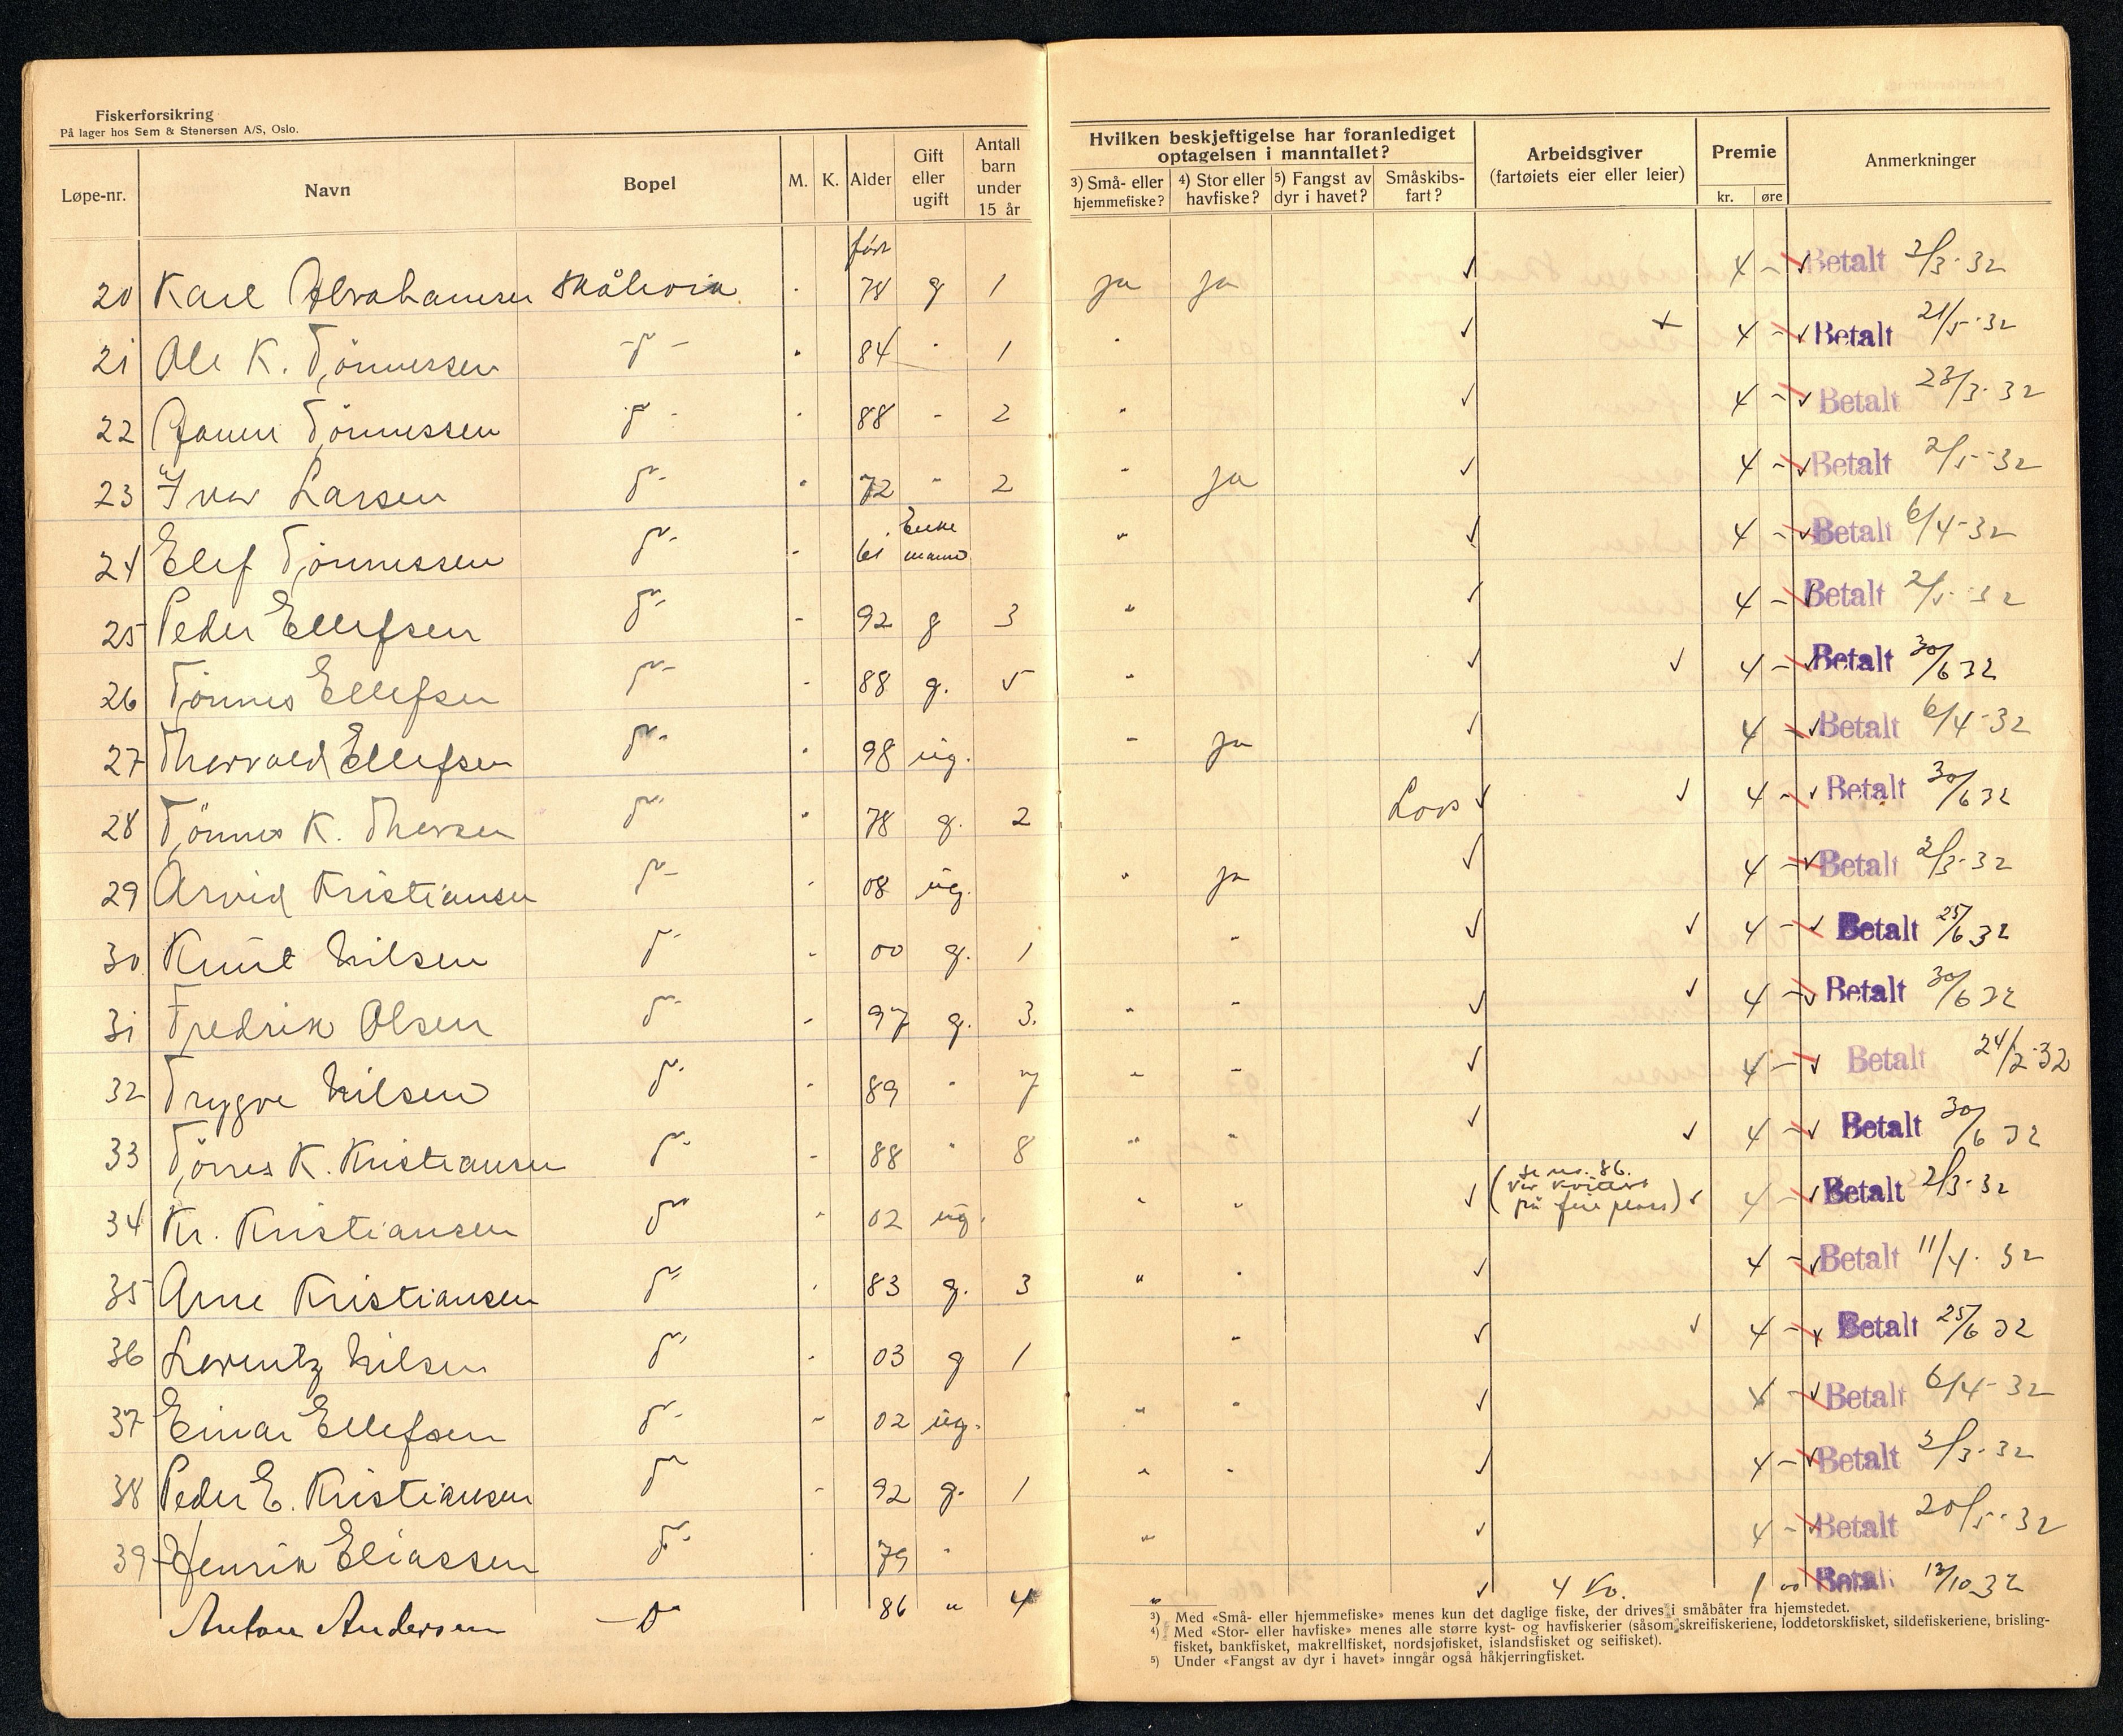 Fiskerforsikring
På lager hos Sem & Stenersen A/S, Oslo.
Løpe-nr. Navn Bopel M. K. Alder Gift eller ugift Antall barn under 15 år
Hvilken beskjeftigelse har foranlediget optagelsen i manntallet?
3) Små- eller hjemmefiske? 4) Stor eller havfiske? 5) Fangst av dyr i havet? Småskibs-fart? Arbeidsgiver (fartøiets eier eller leier) Premie kr. øre Anmerkninger
født
20 Karl Abrahamsen Skålevik 78 g 1 ja ja ✓ 4 - ✓ Betalt 2/3-32
21 Ole K. Tönnessen " 84 " 1 " ✓ + 4 - ✓ Betalt 21/5-32
22 Tönnessen " 88 " 2 " ✓ 4 - ✓ Betalt 23/3-32
23 Ivar Larsen " 72 " 2 " ja ✓ 4 - ✓ Betalt 2/5-32
24 Elef Tönnessen " 61 Enke mann " ✓ 4 - ✓ Betalt 6/4-32
25 Peder Ellefsen " 92 g 3 " ✓ 4 - ✓ Betalt 2/5-32
26 Tönnes Ellefsen " 88 g. 5 " ✓ ✓ 4 - ✓ Betalt 30/6 32
27 Thorvald Ellefsen " 98 ug. " ja ✓ 4 - ✓ Betalt 6/4-32
28 Tönnes K. Thorsen " 78 g. 2 Los ✓ ✓ 4 - ✓ Betalt 30/6 32
29 Arvid Kristiansen " 08 ug. " ja ✓ 4 - ✓ Betalt 2/3-32
30 Knut Nilsen " 00 g. 1 " ✓ ✓ 4 - ✓ Betalt 25/6 32
31 Fredrik Olsen " 97 g. 3. " " ✓ ✓ 4 - ✓ Betalt 30/6 32
32 Trygve Nilsen " 89 " 7 " " ✓ 4 - ✓ Betalt 24/2-32
33 Törres K. Kristiansen " 88 " 8 " " ✓ ✓ 4 - ✓ Betalt 30/6 32
34 Kr. Kristiansen " 02 ug. " " ✓ (se no. 86. på plass) ✓ 4 - ✓ Betalt 2/3-32
35 Arne Kristiansen " 83 g. 3 " " ✓ 4 - ✓ Betalt 11/4-32
36 Lorentz Nilsen " 03 g 1 " ✓ ✓ 4 - ✓ Betalt 25/6 32
37 Einar Ellefsen " 02 ug. " " ✓ 4 - ✓ Betalt 6/4-32
38 Peder E. Kristiansen " 92 g. 1 " " ✓ 4 - ✓ Betalt 2/3-32
39 Henrik Eliassen " 79 " " ✓ 4 - ✓ Betalt 20/5-32
Anton Andersen " 86 " 4 " ✓ Betalt 12/10 32
3) Med «Små- eller hjemmefiske» menes kun det daglige fiske, der drives i småbåter fra hjemstedet.
4) Med «Stor- eller havfiske» menes alle større kyst- og havfiskerier (såsom skreifiskeriene, loddetorskfisket, sildefiskeriene, brisling-
fisket, bankfisket, makrellfisket, nordsjøfisket, islandsfisket og seifisket).
5) Under «Fangst av dyr i havet» inngår også håkjerringfisket.